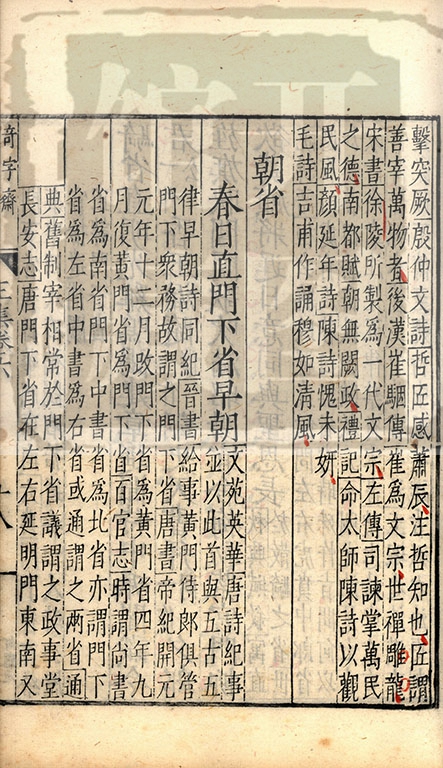 擊突厥殷仲文詩哲匠感蕭辰注哲知也匠謂
善宰萬物者後漢崔駰傳崔爲文宗世禪雕龍
宋書徐陵所製爲一代文宗左傳司諫掌萬民
之德南都賦朝無闕政禮記命太師陳詩以觀
民風顏延年詩陳詩愧未妍
毛詩吉甫作誦穆如清風
朝省
春日直門下省早朝
文苑英華唐詩紀事
並以此首與五古五
律早朝詩同紀晉書給事黃門侍郎俱管
門下衆務故謂之門下省唐書帝紀開元
元年十二月改門下省爲黃門省四年九
月復黃門省爲門下省百官志時謂尚書
省爲南省門下中書省爲北省亦謂門下
省爲左省中書爲右省或通謂之兩省通
典舊制宰相常於門下省議謂之政事堂
長安志唐門下省在左右延明門東南又
奇字齋